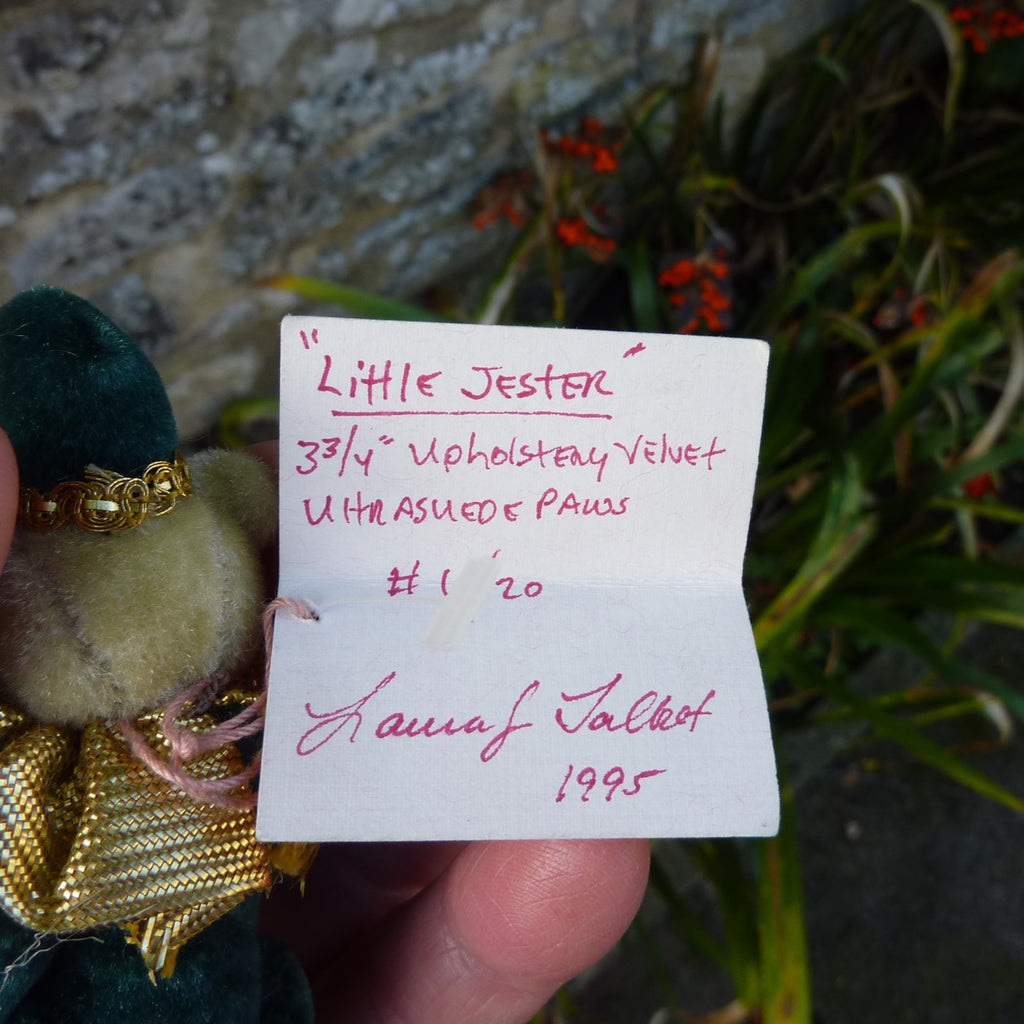 "Little Jester"
3 3/4" Upholstery Velvet
Ultrasuede Paws
# 1 20
Laura J Talbot
1995